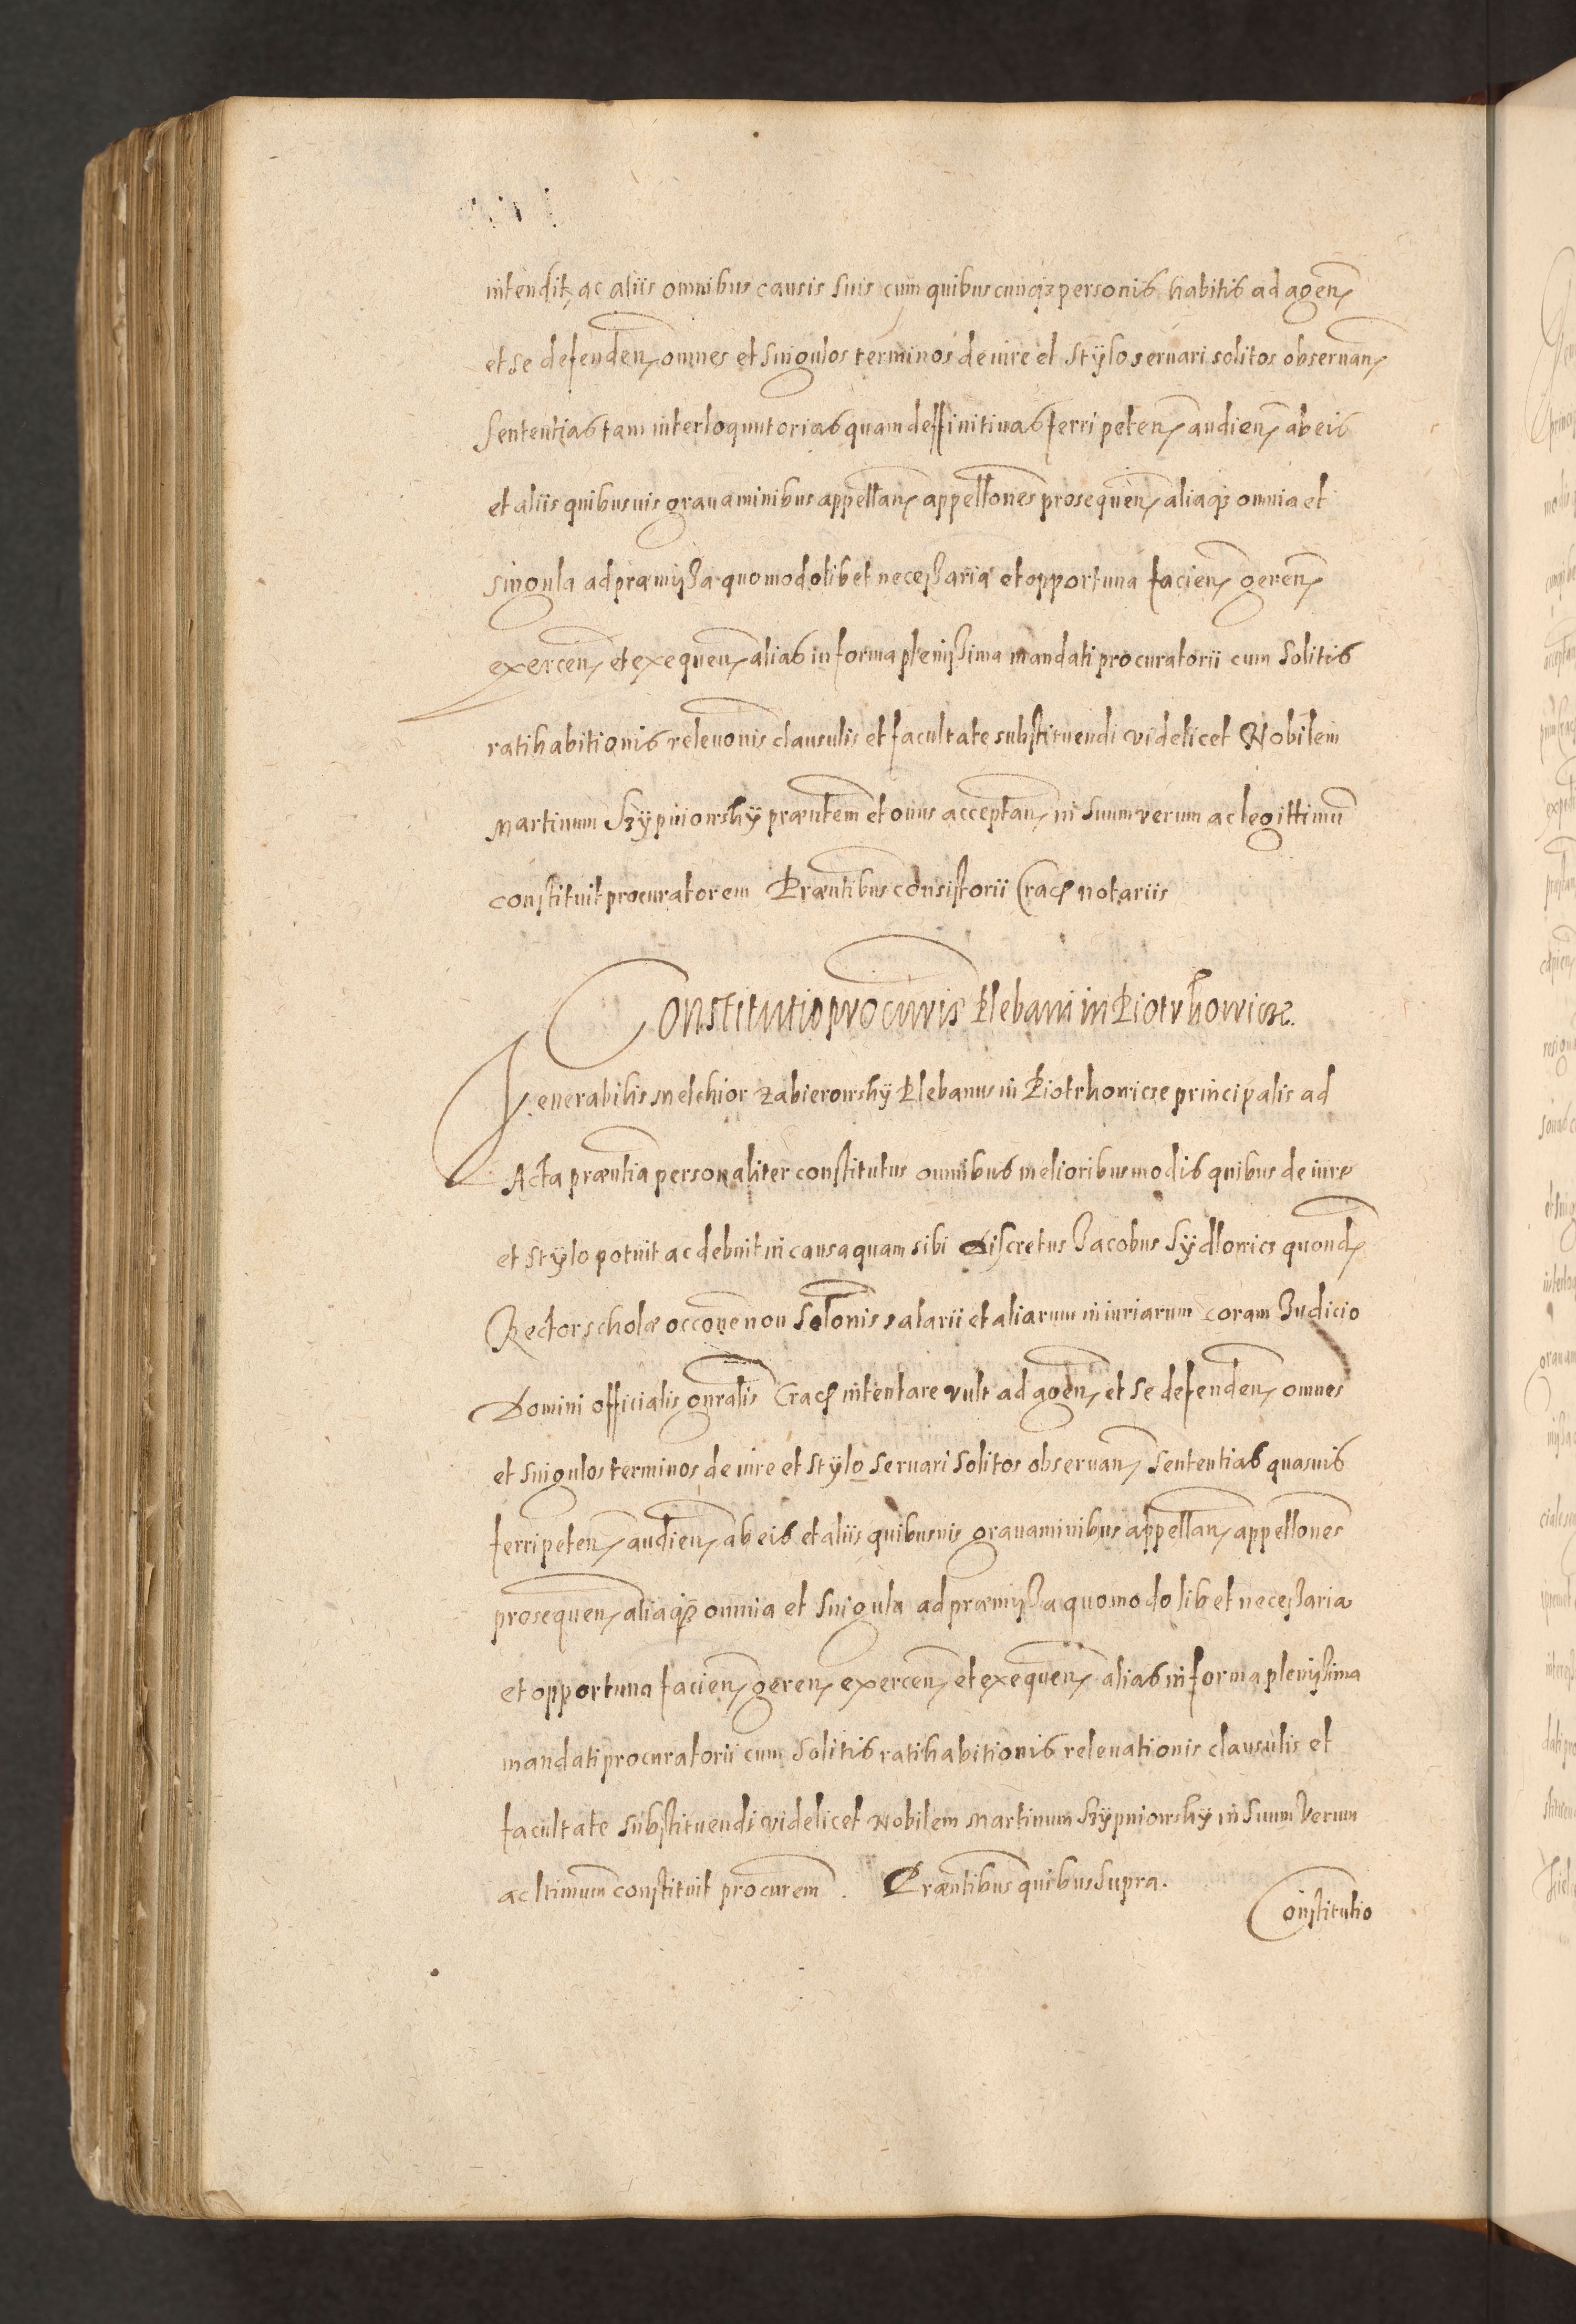 intendit, ac aliis omnibus causis suis cum quibuscunqꝫ personis habitis ad agen̄
et se defenden̄ omnes et singulos terminos de iure et stÿlo seruari solitos obseruan̄
Sententias tam interloquutorias quam deffinitiuas ferri peten̄ audien̄ ab eis
et aliis quibusuis grauaminibus appellan̄ appellōnes prosequen̄ aliaqꝫ omnia et
singula ad præmißa quomodolibet neceßaria et opportuna facien̄ geren̄
exercen̄ et exequen̄ alias in forma plenißima mandati procuratorii cum solitis
ratihabitionis releuōnis clausulis et facultate substituendi videlicet Nobilem
Martinum Szÿpniowskÿ præntem et onus acceptan̄ in suum verum ac legittimū
constituit procuratorem Præntibus consistorii Crac̄ notariis
Constitutio procuris Plebani in Piotrkowicze.
Venerabilis Melchior Zabierowskÿ Plebanus in Piotrkowicze principalis ad
Acta præntia personaliter constitutus omnibus melioribus modis quibus de iure
et stÿlo potuit ac debuit in causa quam sibi Discretus Jacobus Sÿdlowicz quond̄
Rector scholæ occōne non solōnis salarii et aliarum iniuriarum coram Judicio
Domini officialis gnralis Crac̄ intentare vult ad agen̄ et se defenden̄ omnes
et singulos terminos de iure et stÿlo seruari solitos obseruan̄ Sententias quasuis
ferri peten̄ audien̄ ab eis et aliis quibusuis grauaminibus appellan̄ appellōnes
prosequen̄ aliaqꝫ omnia et singula ad præmißa quomodolibet neceßaria
et opportuna facien̄ geren̄ exercen̄ et exequen̄ alias in forma plenißima
mandati procuratorii cum solitis ratihabitionis releuationis clausulis et
facultate substituendi videlicet Nobilem Martinum Szÿpniowskÿ in suum verum
ac ltimum constituit procurem. Præntibus quibus supra.
Constitutio